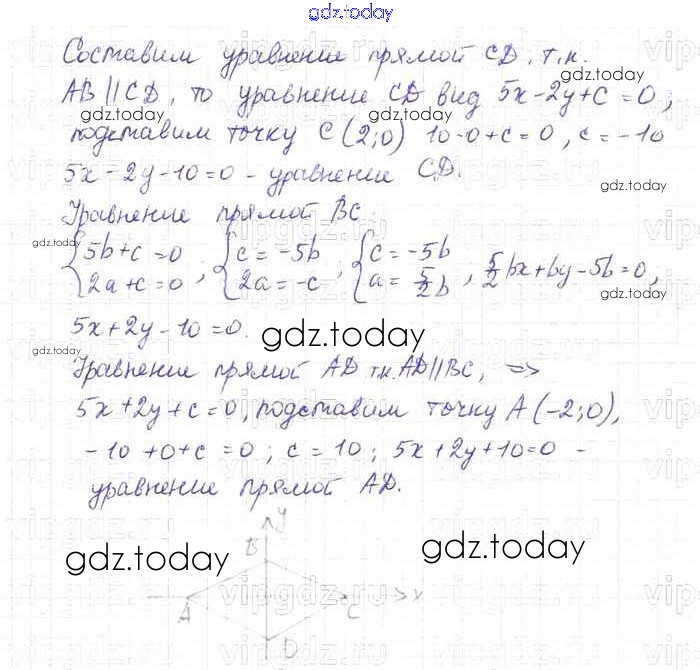 gdz.today
Составим уравнение прямой CD, т.к.
gdz.today
AB || CD, то уравнение CD вид 5x-2y+c=0;
gdz.today gdz.today
подставим точку C(2;0) 10-0+c=0, c=-10
5x-2y-10=0 - уравнение CD.
gdz.today
Уравнение прямой BC:
gdz.today
{5b+c=0 ; {c=-5b ; {c=-5b , 5/2bx+by-5b=0,
{2a+c=0 {2a=-c {a=5/2b
gdz.today
5x+2y-10=0.
gdz.today
gdz.today
Уравнение прямой AD т.к. AD||BC, =>
5x+2y+c=0, подставим точку A(-2;0),
-10+0+c=0; c=10; 5x+2y+10=0 -
уравнение прямой AD.
y
B
gdz.today gdz.today
A C x
D
vipgdz.ru